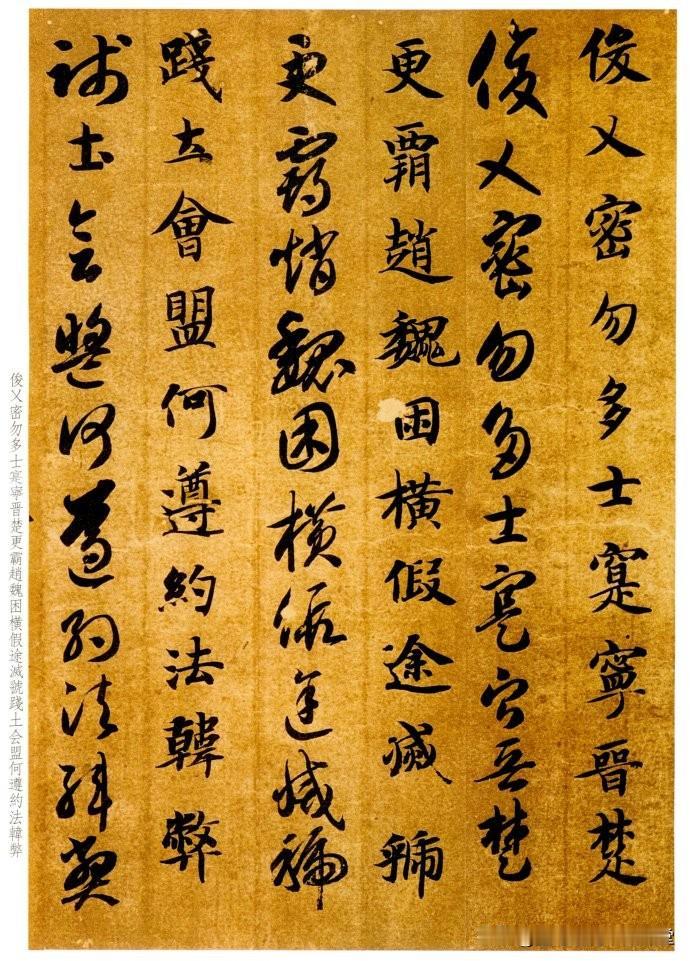 俊乂密勿多士寔寧晉楚
俊乂密勿多士寔寧晉楚
更霸趙魏困橫假途滅虢
更霸趙魏困橫假途滅虢
踐土會盟何遵約法韓弊
踐土會盟何遵約法韓弊
俊乂密勿多士寔寧晉楚更霸趙魏困橫假途滅號踐土会盟何遵約法韓弊